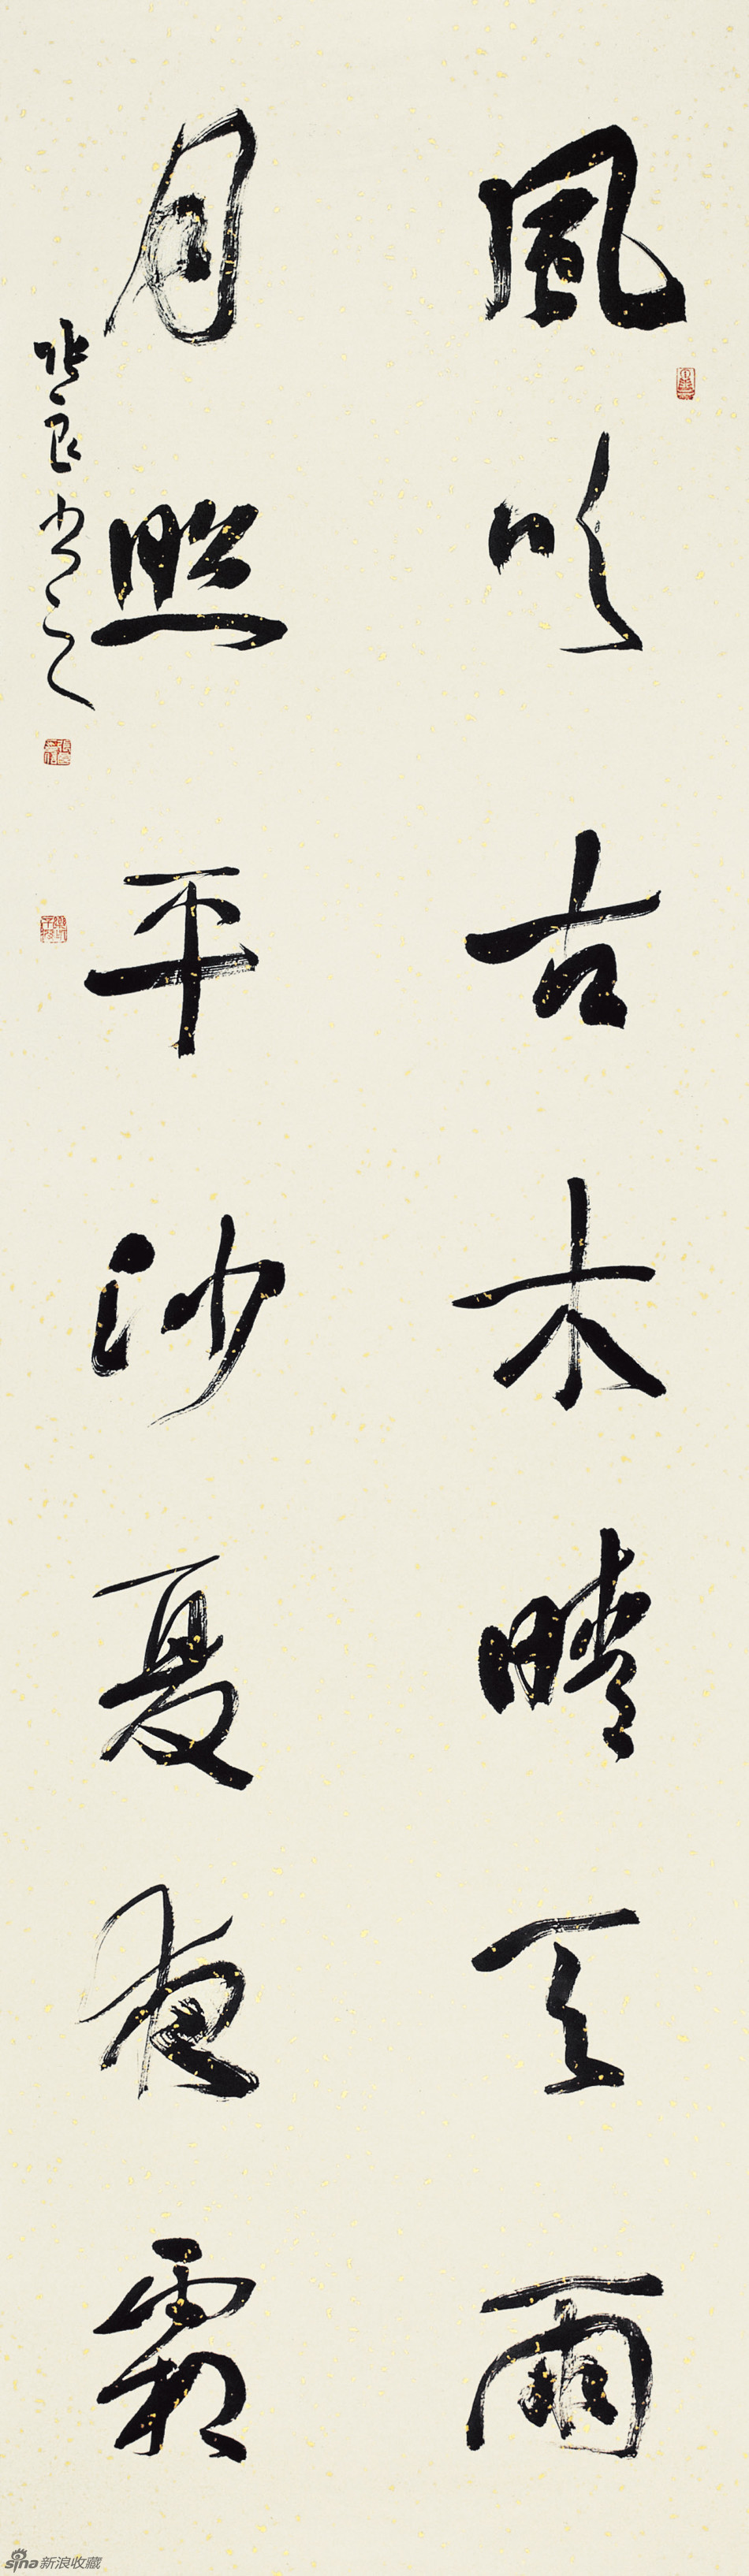 風吹古木晴天雨
月照平沙夏夜霜
張良書之
sina新浪收藏